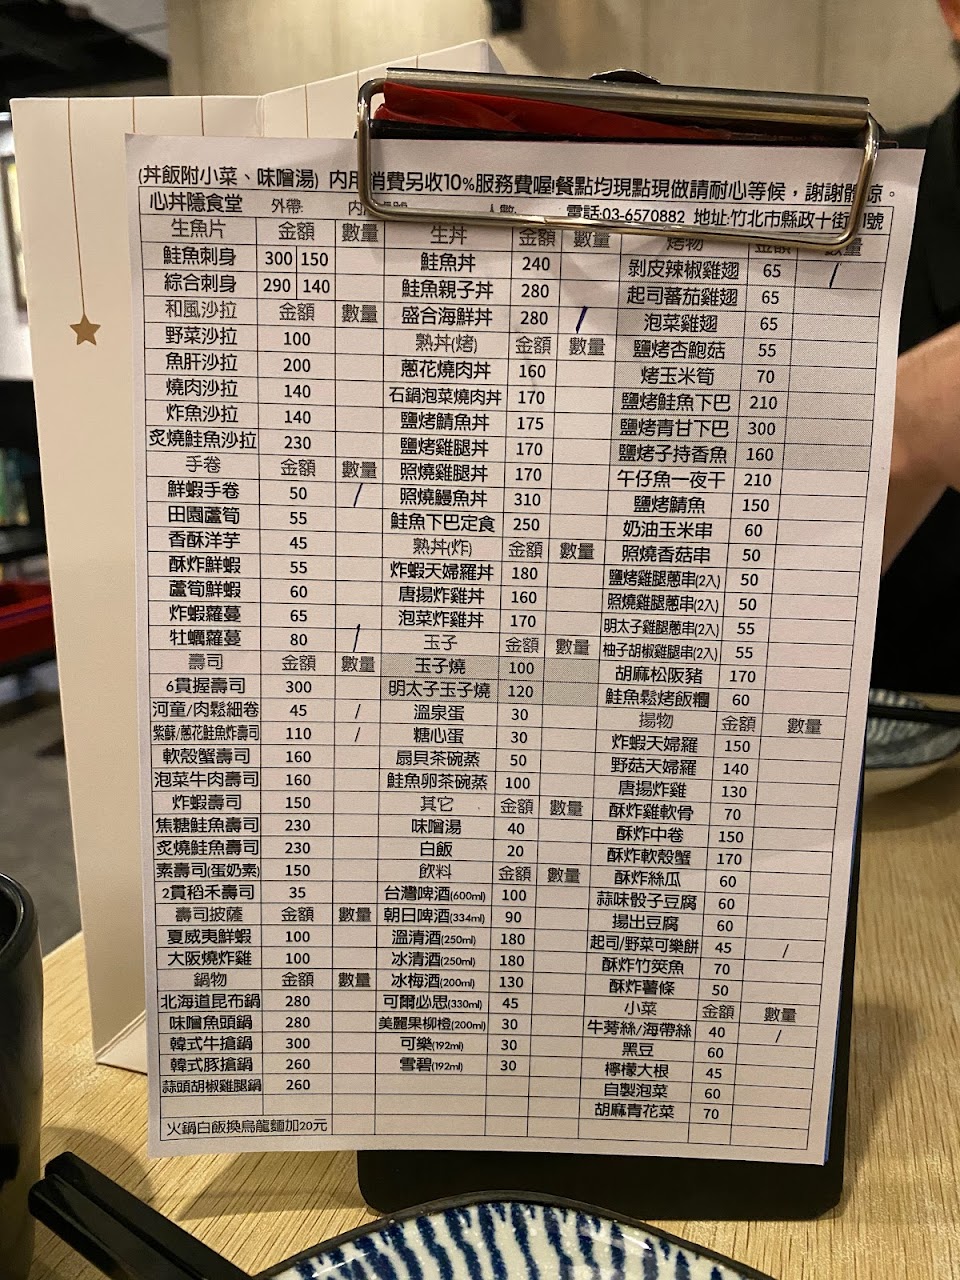 (丼飯附小菜、味噌湯) 內用消費另收10%服務費喔!餐點均現點現做請耐心等候，謝謝體諒。
心丼隱食堂 外帶: 電話:03-6570882 地址:竹北市縣政十街
生魚片 金額 數量
鮭魚刺身 300 150
綜合刺身 290 140
和風沙拉 金額 數量
野菜沙拉 100
魚肝沙拉 200
燒肉沙拉 140
炸魚沙拉 140
炙燒鮭魚沙拉 230
手卷 金額 數量
鮮蝦手卷 50 /
田園蘆筍 55
香酥洋芋 45
酥炸鮮蝦 55
蘆筍鮮蝦 60
炸蝦蘿蔓 65
牡蠣蘿蔓 80 /
壽司 金額 數量
6貫握壽司 300
河童/肉鬆細卷 45 /
紫蘇/蔥花鮭魚炸壽司 110 /
軟殼蟹壽司 160
泡菜牛肉壽司 160
炸蝦壽司 150
焦糖鮭魚壽司 230
炙燒鮭魚壽司 230
素壽司(蛋奶素) 150
2貫稻禾壽司 35
壽司披薩 金額 數量
夏威夷鮮蝦 100
大阪燒炸雞 100
鍋物 金額 數量
北海道昆布鍋 280
味噌魚頭鍋 280
韓式牛搶鍋 300
韓式豚搶鍋 260
蒜頭胡椒雞腿鍋 260
火鍋白飯換烏龍麵加20元
生丼 金額 數量
鮭魚丼 240
鮭魚親子丼 280
盛合海鮮丼 280 /
熟丼(烤) 金額 數量
蔥花燒肉丼 160
石鍋泡菜燒肉丼 170
鹽烤鯖魚丼 175
鹽烤雞腿丼 170
照燒雞腿丼 170
照燒鰻魚丼 310
鮭魚下巴定食 250
熟丼(炸) 金額 數量
炸蝦天婦羅丼 180
唐揚炸雞丼 160
泡菜炸雞丼 170
玉子 金額 數量
玉子燒 100
明太子玉子燒 120
溫泉蛋 30
糖心蛋 30
扇貝茶碗蒸 50
鮭魚卵茶碗蒸 100
其它 金額 數量
味噌湯 40
白飯 20
飲料 金額 數量
台灣啤酒(600ml) 100
朝日啤酒(334ml) 90
溫清酒(250ml) 180
冰清酒(250ml) 180
冰梅酒(200ml) 130
可爾必思(330ml) 45
美麗果柳橙(200ml) 30
可樂(192ml) 30
雪碧(192ml) 30
烤物 金額 數量
剝皮辣椒雞翅 65 /
起司蕃茄雞翅 65
泡菜雞翅 65
鹽烤杏鮑菇 55
烤玉米筍 70
鹽烤鮭魚下巴 210
鹽烤青甘下巴 300
鹽烤子持香魚 160
午仔魚一夜干 210
鹽烤鯖魚 150
奶油玉米串 60
照燒香菇串 50
鹽烤雞腿蔥串(2入) 50
照燒雞腿蔥串(2入) 50
明太子雞腿蔥串(2入) 55
柚子胡椒雞腿串(2入) 55
胡麻松阪豬 170
鮭魚鬆烤飯糰 60
揚物 金額 數量
炸蝦天婦羅 150
野菇天婦羅 140
唐揚炸雞 130
酥炸雞軟骨 70
酥炸中卷 150
酥炸軟殼蟹 170
酥炸絲瓜 60
蒜味骰子豆腐 60
揚出豆腐 60
起司/野菜可樂餅 45 /
酥炸竹筴魚 70
酥炸薯條 50
小菜 金額 數量
牛蒡絲/海帶絲 40 /
黑豆 60
檸檬大根 45
自製泡菜 60
胡麻青花菜 70